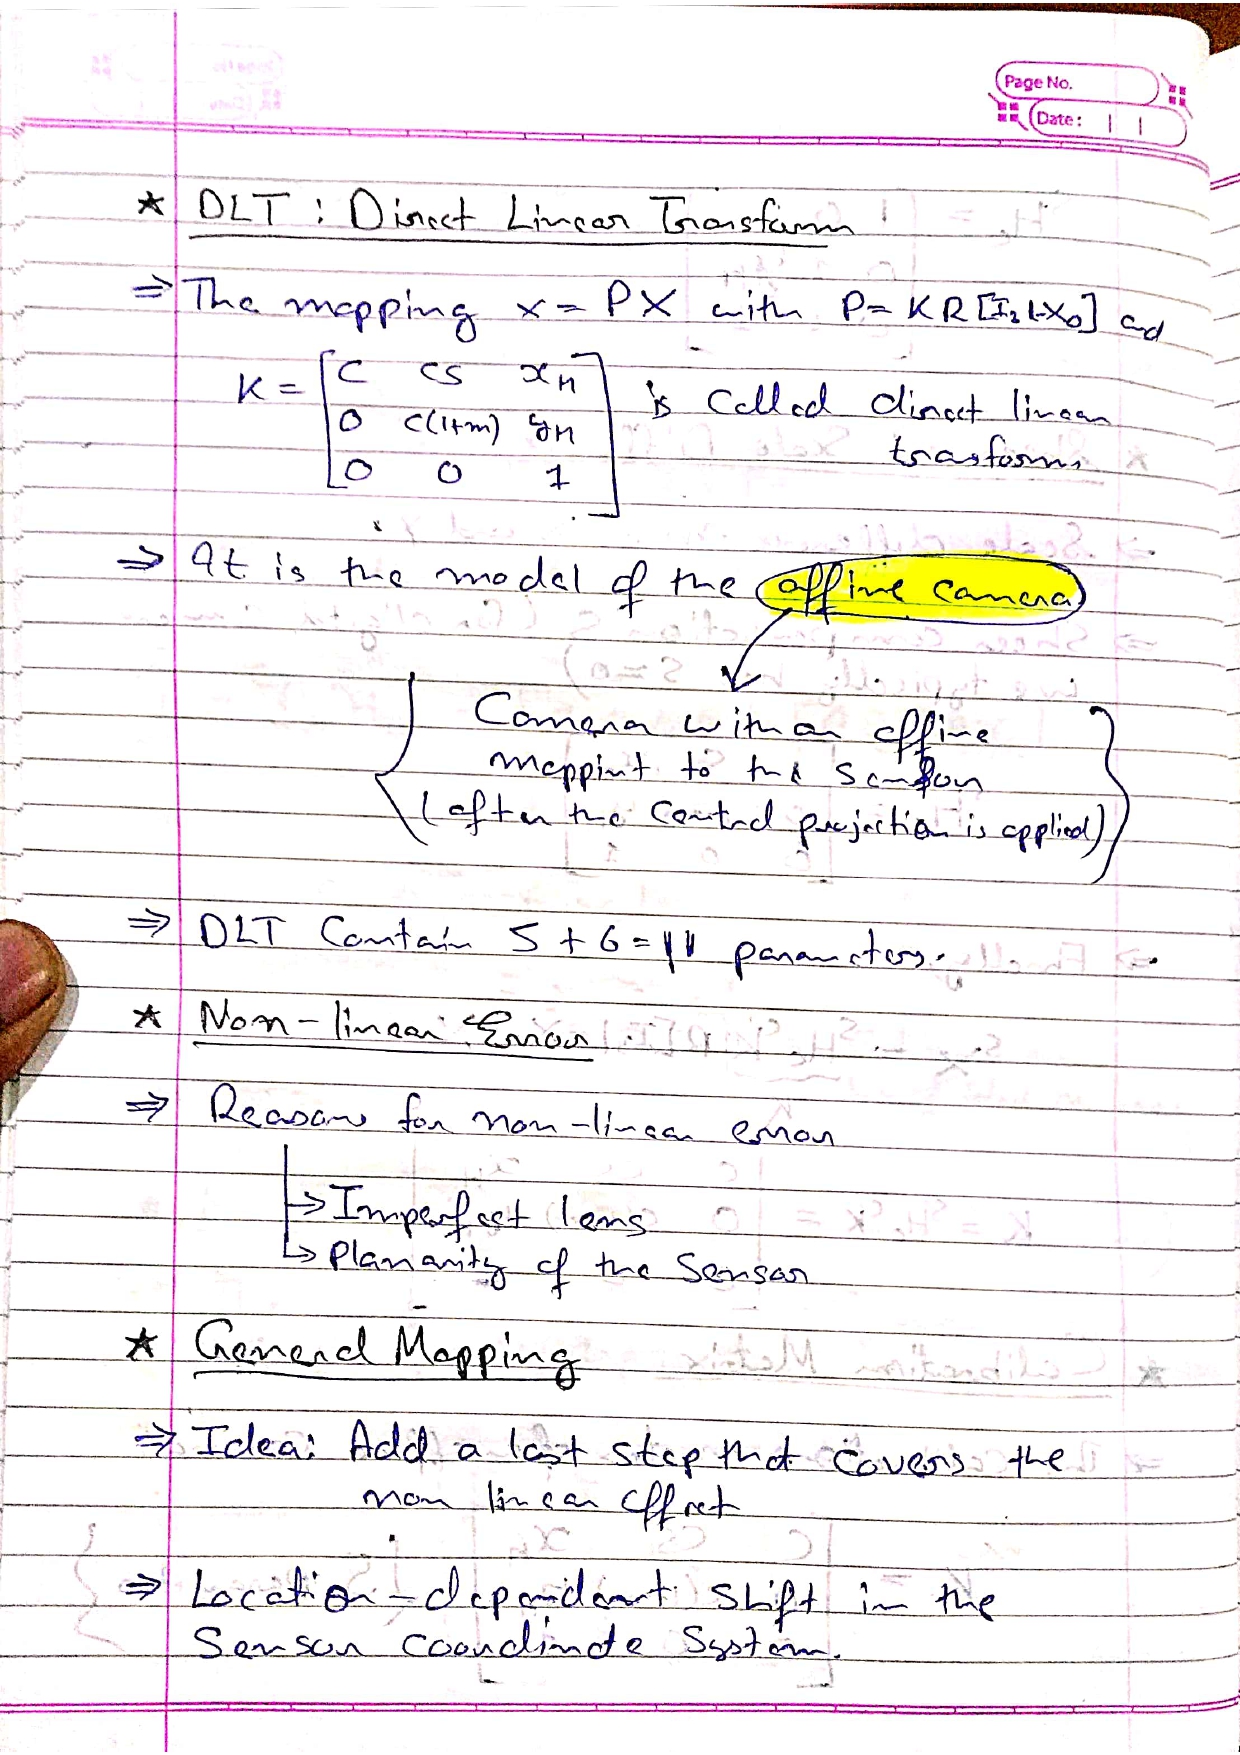 Page No.
Date:
★ DLT : Direct Linear Transform
⇒ The mapping x = PX with P = KR[I₃|-X₀] and
K = [C CS x_H
0 C(1+m) y_H
0 0 1]
is called direct linear
trasform,
⇒ It is the model of the affine camera
Camera with an affine
mappint to the sensor
(after the central projection is applied)
⇒ DLT Contain 5 + 6 = 11 parameters.
★ Non-linear Error
⇒ Reasons for non-linear error
→ Imperfect lens
→ Planarity of the Sensor
★ General Mapping
⇒ Idea: Add a last step that covers the
non linear effect
⇒ Location-dependant shift in the
Sensor coordinate System.